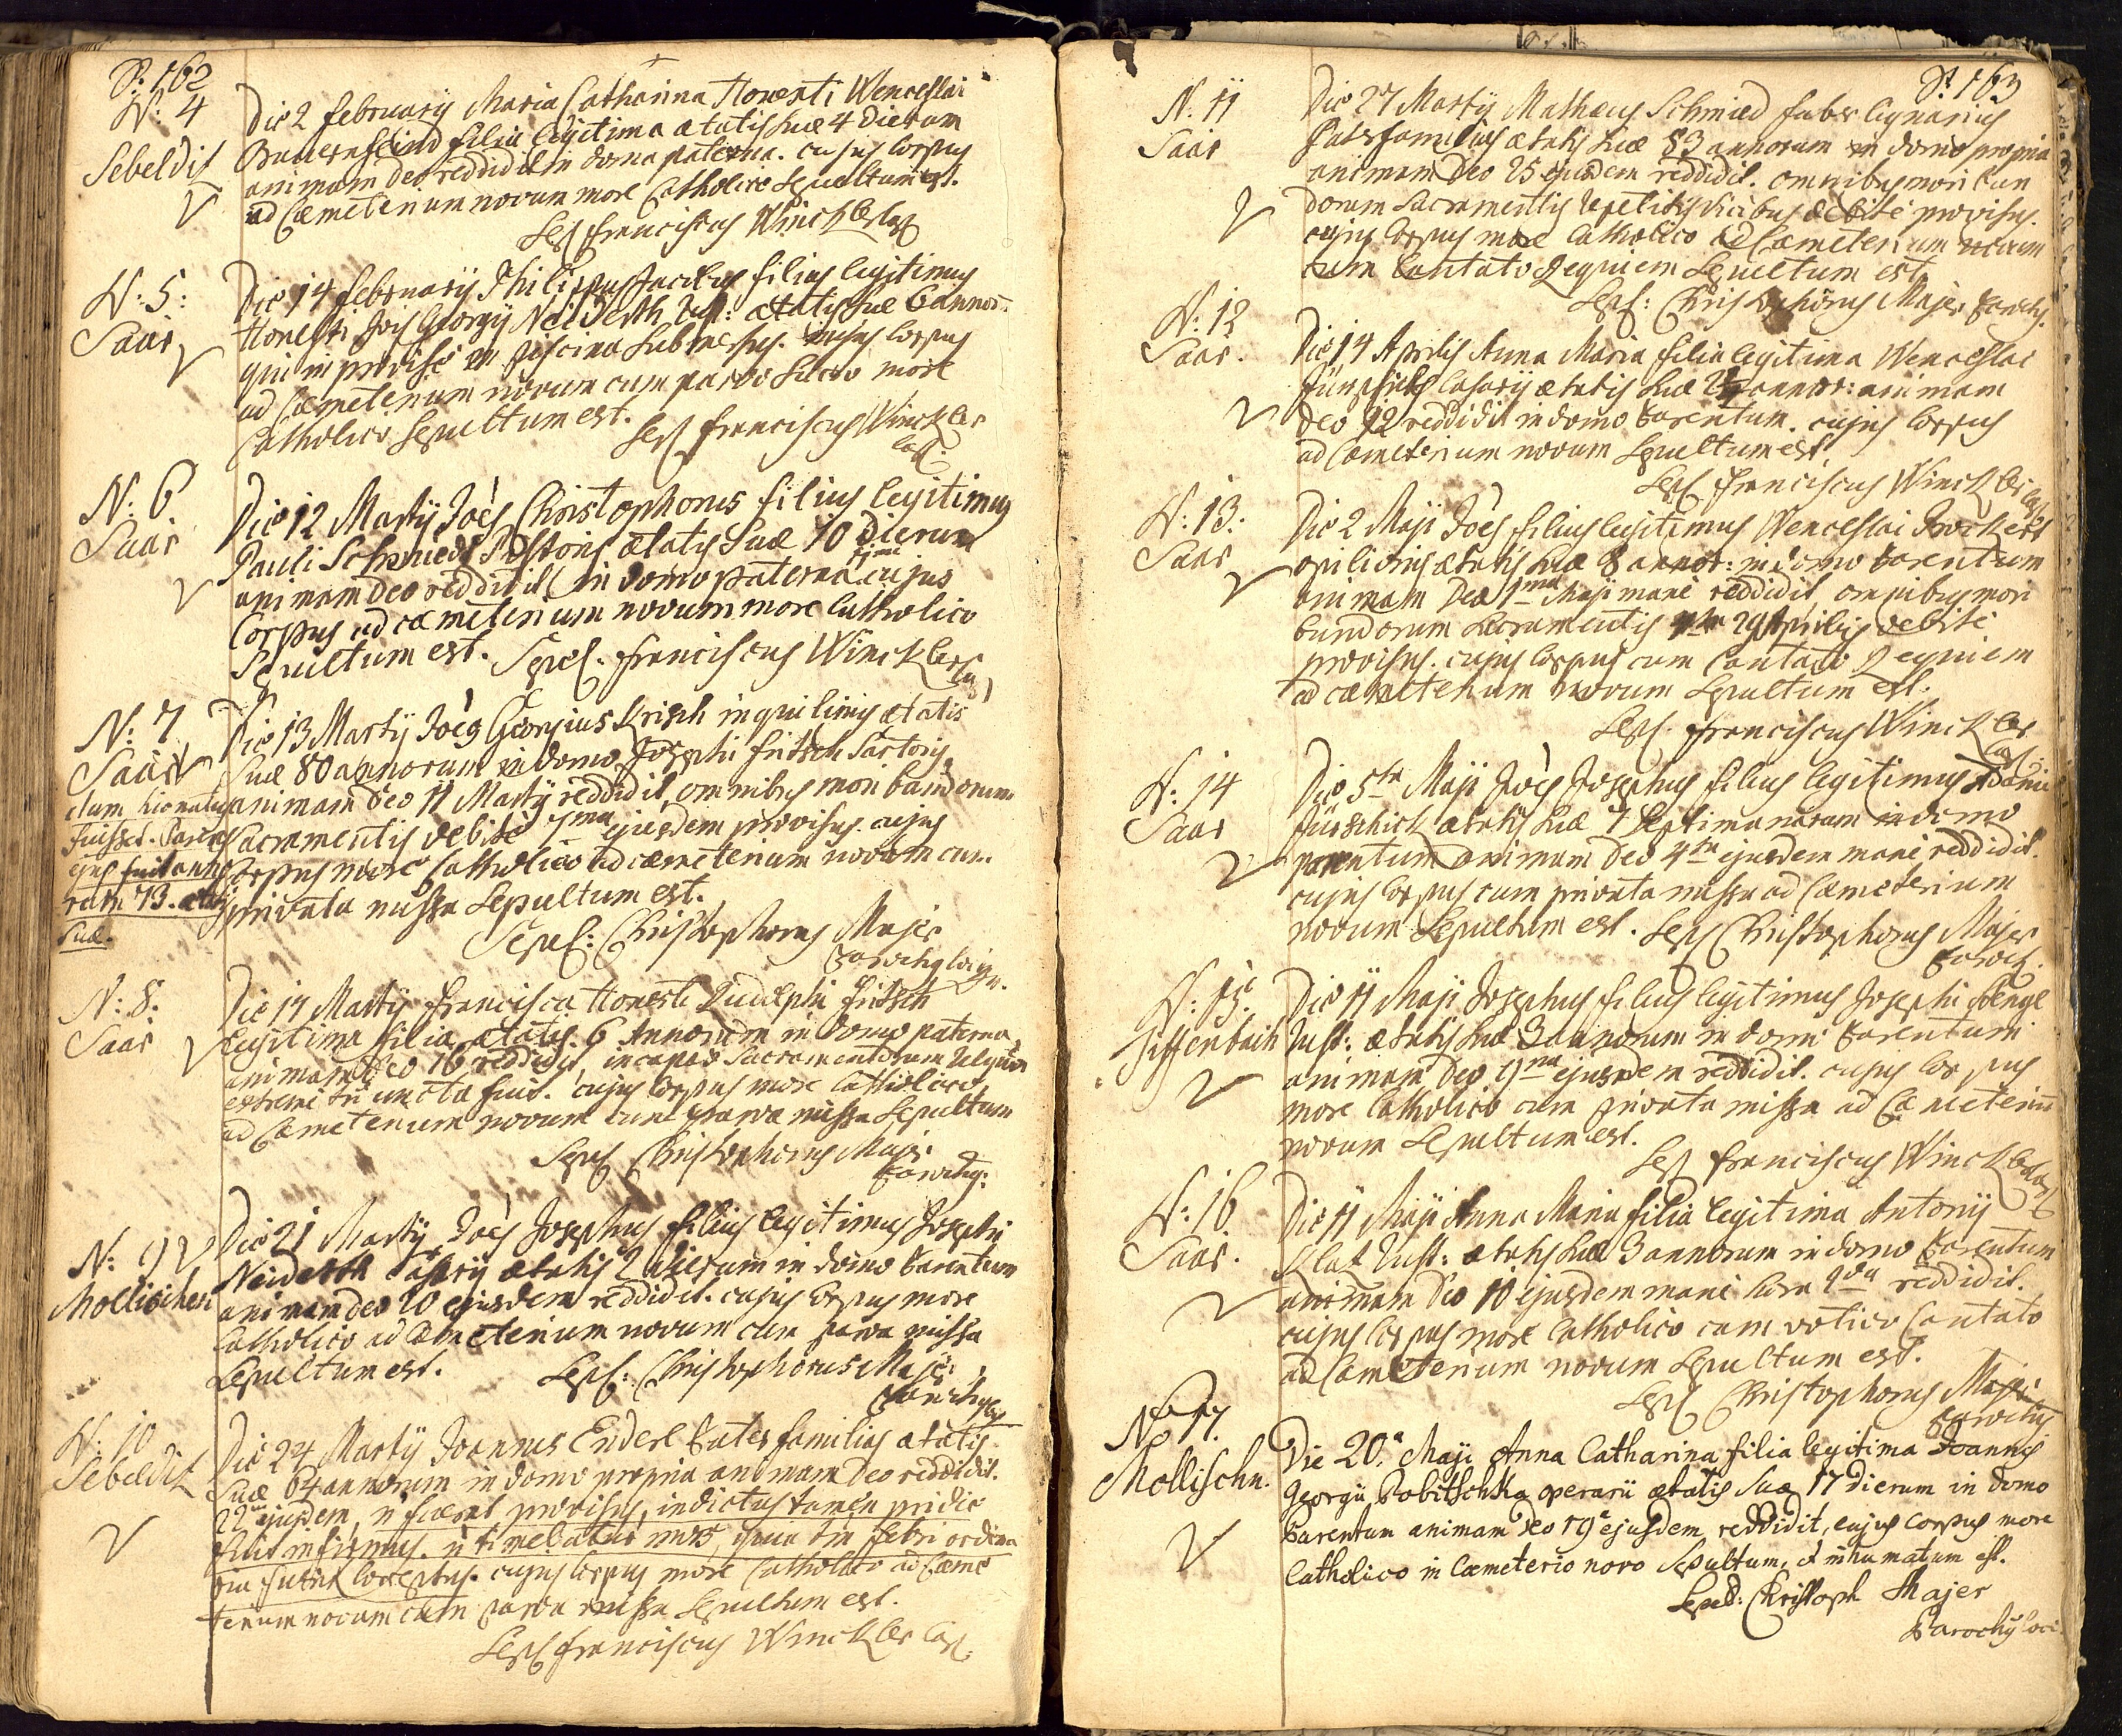 P: 162
N: 4
Sebeldis
Die 2 februarÿ Maria Catharina Honesti Wenceslai
Bauernfeind filia legitima ætatis suæ 4 dierum
animam deo reddidit in domo paterna. cujus Corpus
ad Cæmeterium novum more Catholico Sepultum est.
Sep franciscus Winckler Cap
N: 5:
Saar
Die 14 februarÿ Philippus Jacobus filius legitimus
Honesti Jois Georgÿ Neiderth ætatis suæ 6 annor:
qui improvise in piscina submersus. cujus Corpus
ad Cæmeterium novum cum parvo Sacro more
Catholico Sepultum est.
Sep franciscus Winckler
Cap.
N: 6
Saar
Die 12 Martÿ Joes Christophorus filius legitimus
Pauli Schmiedt Pistoris ætatis Suæ 10 dierum
animam deo reddidit in domo paterna cujus
Corpus ad cæmeterium novum more Catholico
Sepultum est. Sepel. franciscus Winckler Cap
N: 7
Saar
Die 13 Martÿ Joes Georgius Krisch inquilinus ætatis
Suæ 80 annorum in domo Josephi fritsch Sartoris
animam deo 11 Martÿ reddidit, omnibus moribundorum
Sacramentis debite 7ma ejusdem provisus. cujus
Corpus more Catholico ad cæmeterium novum cum
privata missa Sepultum est.
rum 73. ætatis
Suæ.
Sepel: Christophorus Majer
Parochus loci
N: 8:
Saar
Die 17 Martÿ francisca Honesti Rudolphi fritsch
legitima filia ætatis 6 Annorum in domo paterna
animam deo 16 reddidit, incapax Sacramentorum
extremi tu uncta fuit. cujus Corpus more Catholico
ad Cæmeterium novum cum parva missa Sepultum
Sepel Christophorus Majer
Parochus:
N: 9
Mollischen
Die 21 Martÿ Joes Josephus filius legitimus Josephi
Neiderth Casarÿ ætatis 2 dierum in domo Parentum
animam deo 20 ejusdem reddidit. cujus Corpus more
Catholico ad Cæmeterium novum cum parva missa
Sepultum est. Sepel: Christophorus Majer
Parochus
N: 10
Sebeldis
Die 24 Martÿ Joannes Enderl Pater familias ætatis
Suæ 64 annorum in domo propria animam Deo reddidit.
22 ejusdem, provisus, tamen pridie
fuit infirmus. timebatur mors, febri
fuerat Correptus. cujus Corpus more Catholico ad Cæme
terium novum cum parva missa Sepultum est.
Sepel franciscus Winckler Cap.
P: 163
N: 11
Saar
Die 27 Martÿ Matheus Schmied faber lignarius
Paterfamilias ætatis suæ 83 annorum in domo propria
animam Deo 25 ejusdem reddidit. omnibus moribun
dorum Sacramentis repetitis vicibus debite provisus.
cujus Corpus more Catholico ad Cæmeterium novum
cum Cantato Requiem Sepultum est
Sepel: Christophorus Majer Paroch.
N: 12
Saar.
Die 14 Aprilis Anna Maria filia legitima Wenceslai
Casarÿ ætatis suæ annor: animam
deo 12 reddidit in domo Parentum. cujus Corpus
ad Cæmeterium novum Sepultum est
Sepel franciscus Winckler Cap
N: 13.
Saar
Die 2 Maji Joes filius legitimus Wenceslai
opilionis ætatis suæ 8 annor: in domo Parentum
animam Deo 1ma Maji mane reddidit, omnibus mori
bundorum Sacramentis 29 Aprilis debite
provisus. cujus Corpus cum Cantato Requiem
ad cæmeterium novum Sepultum est.
Sepel. franciscus Winckler
Cap
N: 14
Saar
Die 5ta Maji Joes Josephus filius legitimus
ætatis suæ 7 Septimanarum in domo
parentum animam deo 4ta ejusdem mane reddidit.
cujus Corpus cum privata missa ad Cæmeterium
novum Sepultum est. Sepel Christophorus Majer
Paroch.
N: 15.
Die 11 Maji Josephus filius legitimus Josephi
ætatis suæ 3 annorum in domo Parentum
animam deo 9na ejusdem reddidit. cujus Corpus
more Catholico cum privata missa ad Cæmeteriu
novum Sepultum est.
Sep franciscus Winckler Cap
N: 16
Saar.
Die 11 Maji Anna Maria filia legitima Antonÿ
ætatis suæ 3 annorum in domo Parentum
animam Deo 10 ejusdem mane hora reddidit.
cujus Corpus more Catholico cum votivo Cantato
ad Cæmeterium novum Sepultum est.
Sepel Christophorus Majer
Parochus
N. 17.
Mollischn.
Die 20.a Maji Anna Catharina filia legitima Joannis
Georgii Pobitschka operarii ætatis Suæ 17 dierum in domo
Parentum animam deo 19a ejusdem reddidit, cujus corpus more
Catholico in Cæmeterio novo Sepultum, et inhumatum est.
Sepel: Christoph Majer
Parochus loci